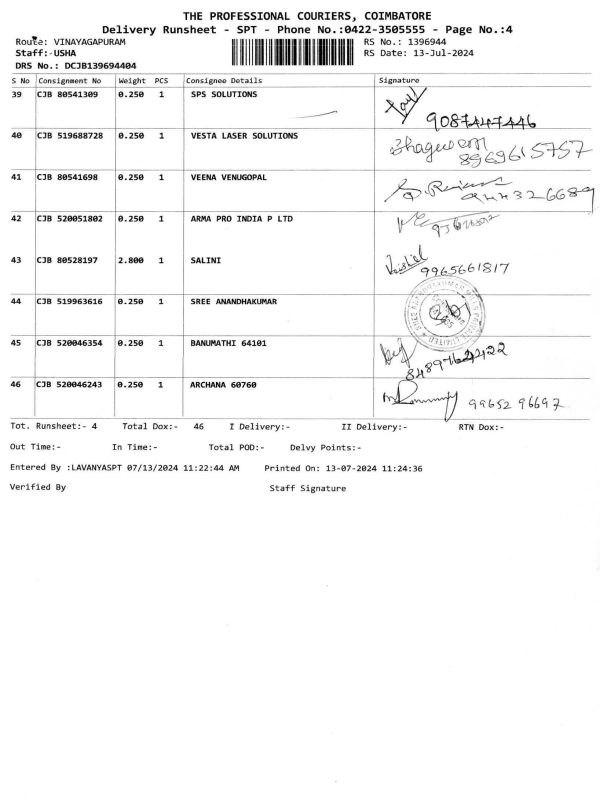 THE PROFESSIONAL COURIERS, COIMBATORE
Delivery Runsheet - SPT - Phone No.:0422-3505555 - Page No.:4
Route: VINAYAGAPURAM RS No.: 1396944
Staff:-USHA RS Date: 13-Jul-2024
DRS No.: DCJB139694404
S No Consignment No Weight PCS Consignee Details Signature
39 CJB 80541309 0.250 1 SPS SOLUTIONS
9087447446
40 CJB 519688728 0.250 1 VESTA LASER SOLUTIONS
8969615757
41 CJB 80541698 0.250 1 VEENA VENUGOPAL
944326689
42 CJB 520051802 0.250 1 ARMA PRO INDIA P LTD
43 CJB 80528197 2.800 1 SALINI
9965661817
44 CJB 519963616 0.250 1 SREE ANANDHAKUMAR
45 CJB 520046354 0.250 1 BANUMATHI 64101
46 CJB 520046243 0.250 1 ARCHANA 60760
99652 96697
Tot. Runsheet:- 4 Total Dox:- 46 I Delivery:- II Delivery:- RTN Dox:-
Out Time:- In Time:- Total POD:- Delvy Points:-
Entered By :LAVANYASPT 07/13/2024 11:22:44 AM Printed On: 13-07-2024 11:24:36
Verified By Staff Signature